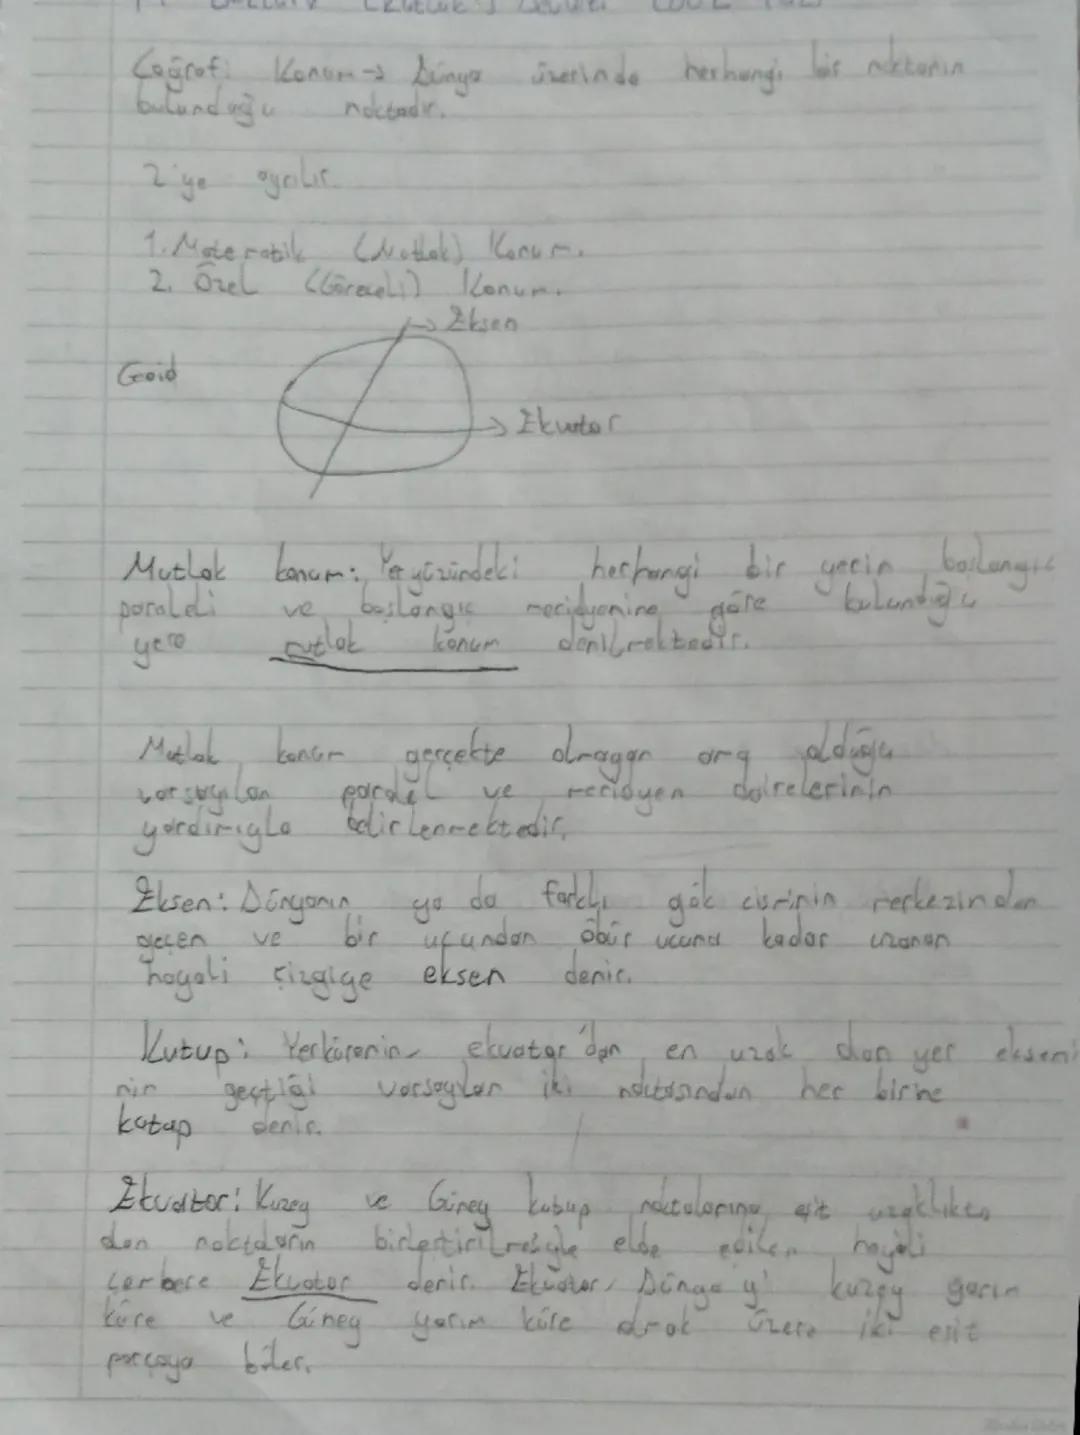 Coğrafi Konum → Dünya üzerinde herhangi bir noktanın
bulunduğu noktadır.
2'ye ayrılır.
1. Matematik (Mutlak) Konum.
2. Özel (Göreceli) Konum.
→ Eksen
Geoid
→ Ekvator
Mutlak konum: Yeryüzündeki herhangi bir yerin başlangıç
paraleli ve başlangıç meridyenine göre bulunduğu
yere mutlak konum denilmektedir.
Mutlak konum gerçekte olmayan ama olduğu
varsayılan paralel ve meridyen dairelerinin
yardımıyla belirlenmektedir.
Eksen: Dünyanın ya da farklı gök cisminin merkezinden
geçen ve bir ucundan öbür ucuna kadar uzanan
hayali çizgiye eksen denir.
Kutup: Yerkürenin ekvator'dan en uzak olan yer ekseni
nin geçtiği varsayılan iki noktasından her birine
kutup denir.
Ekvator: Kuzey ve Güney kutup noktalarına eşit uzaklıkta
olan noktaların birleştirilmesiyle elde edilen hayali
çembere Ekvator denir. Ekvator, Dünya'yı kuzey yarım
küre ve Güney yarım küre olmak üzere iki eşit
parçaya böler.